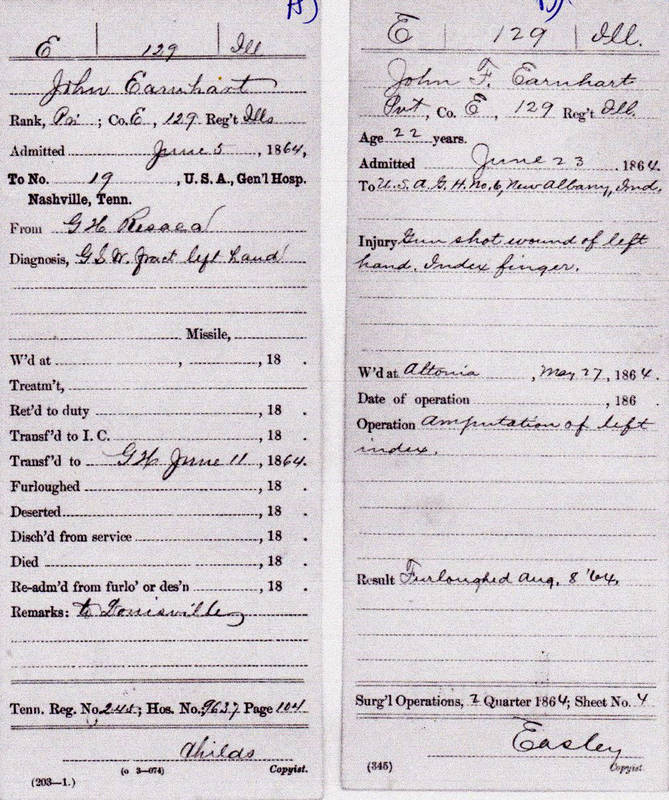 E | 129 | Ill
John Earnhart
Rank, Pri ; Co. E , 129 Reg't Ills
Admitted June 5 , 1864,
To No. 19 , U. S. A., Gen'l Hosp.
Nashville, Tenn.
From G H Resaca
Diagnosis, G S W. fract left hand
Missile,
W'd at , , 18 .
Treatm't,
Ret'd to duty , 18 .
Transf'd to I. C. , 18 .
Transf'd to G H June 11 , 1864.
Furloughed , 18 .
Deserted , 18 .
Disch'd from service , 18 .
Died , 18 .
Re-adm'd from furlo' or des'n , 18 .
Remarks: to Louisville
Tenn. Reg. No. 245 ; Hos. No. 9637 Page 104
Childs
(203—1.) (o 3—074) Copyist.
E | 129 | Ill.
John F. Earnhart
Pvt , Co. E , 129 Reg't Ill.
Age 22 years.
Admitted June 23 , 1864.
To U. S. A. G. H. No. 6, New Albany, Ind.
Injury Gun shot wound of left
hand. Index finger.
W'd at Altonia , May 27, 1864.
Date of operation , 186 .
Operation Amputation of left
index.
Result Furloughed Aug. 8 '64.
Surg'l Operations, 2 Quarter 1864; Sheet No. 4
Easley
(345) Copyist.